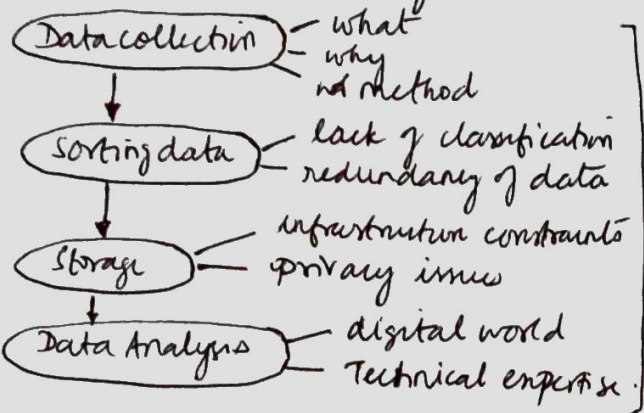 Data collection
what
why
method
Sorting data
lack of classification
redundancy of data
Storage
infrastructure constraints
privacy issues
Data Analysis
digital world
Technical expertise.